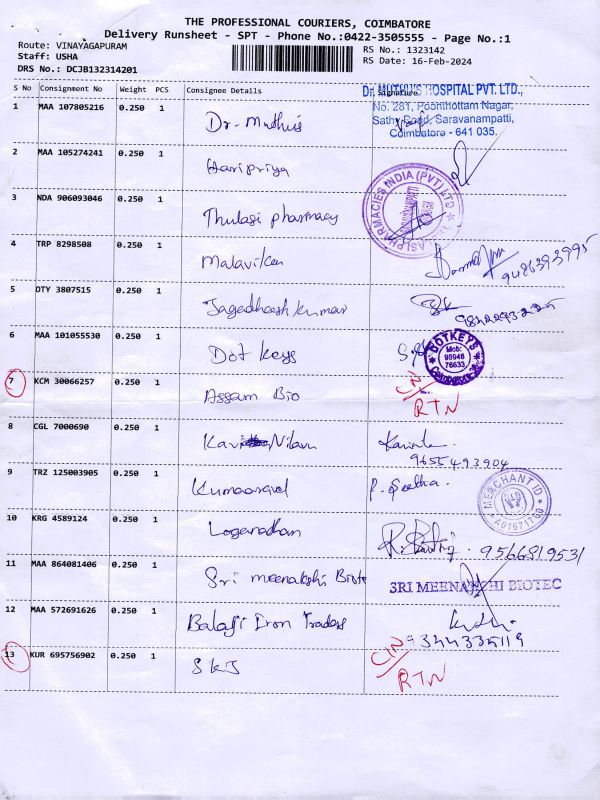 THE PROFESSIONAL COURIERS, COIMBATORE
Delivery Runsheet - SPT - Phone No.:0422-3505555 - Page No.:1
Route: VINAYAGAPURAM
RS No.: 1323142
Staff: USHA
RS Date: 16-Feb-2024
DRS No.: DCJB132314201
S No Consignment No Weight PCS Consignee Details Signature
1 MAA 107805216 0.250 1 Dr. Muthus
Dr. MUTHU'S HOSPITAL PVT. LTD.,
No. 281, Poonthottam Nagar,
Sathy Road, Saravanampatti,
Coimbatore - 641 035.
2 MAA 105274241 0.250 1 Haripriya
3 NDA 906093046 0.250 1 Thulasi pharmacy
PHARMACIES INDIA (PVT) LTD
4 TRP 8298508 0.250 1 Malavika
9486393995
5 DTY 3807515 0.250 1 Jagedheesh kumar
6 MAA 101055530 0.250 1 Dot Keys
DOTKEYS
Mob:
98946
76633
7 KCM 30066257 0.250 1 Assam Bio
RTN
8 CGL 7000690 0.250 1 Nilavu
Kavinla.
9655493904
9 TRZ 125003905 0.250 1 Kumaaravel P. Geetha.
MERCHANT ID
10 KRG 4589124 0.250 1 Loganadhan
9566819531
11 MAA 864081406 0.250 1 Sri meenakshi Biote
SRI MEENAKSHI BIOTEC
12 MAA 572691626 0.250 1 Balaji Iron Traders
9344335119
13 KUR 695756902 0.250 1 SKJ
RTN